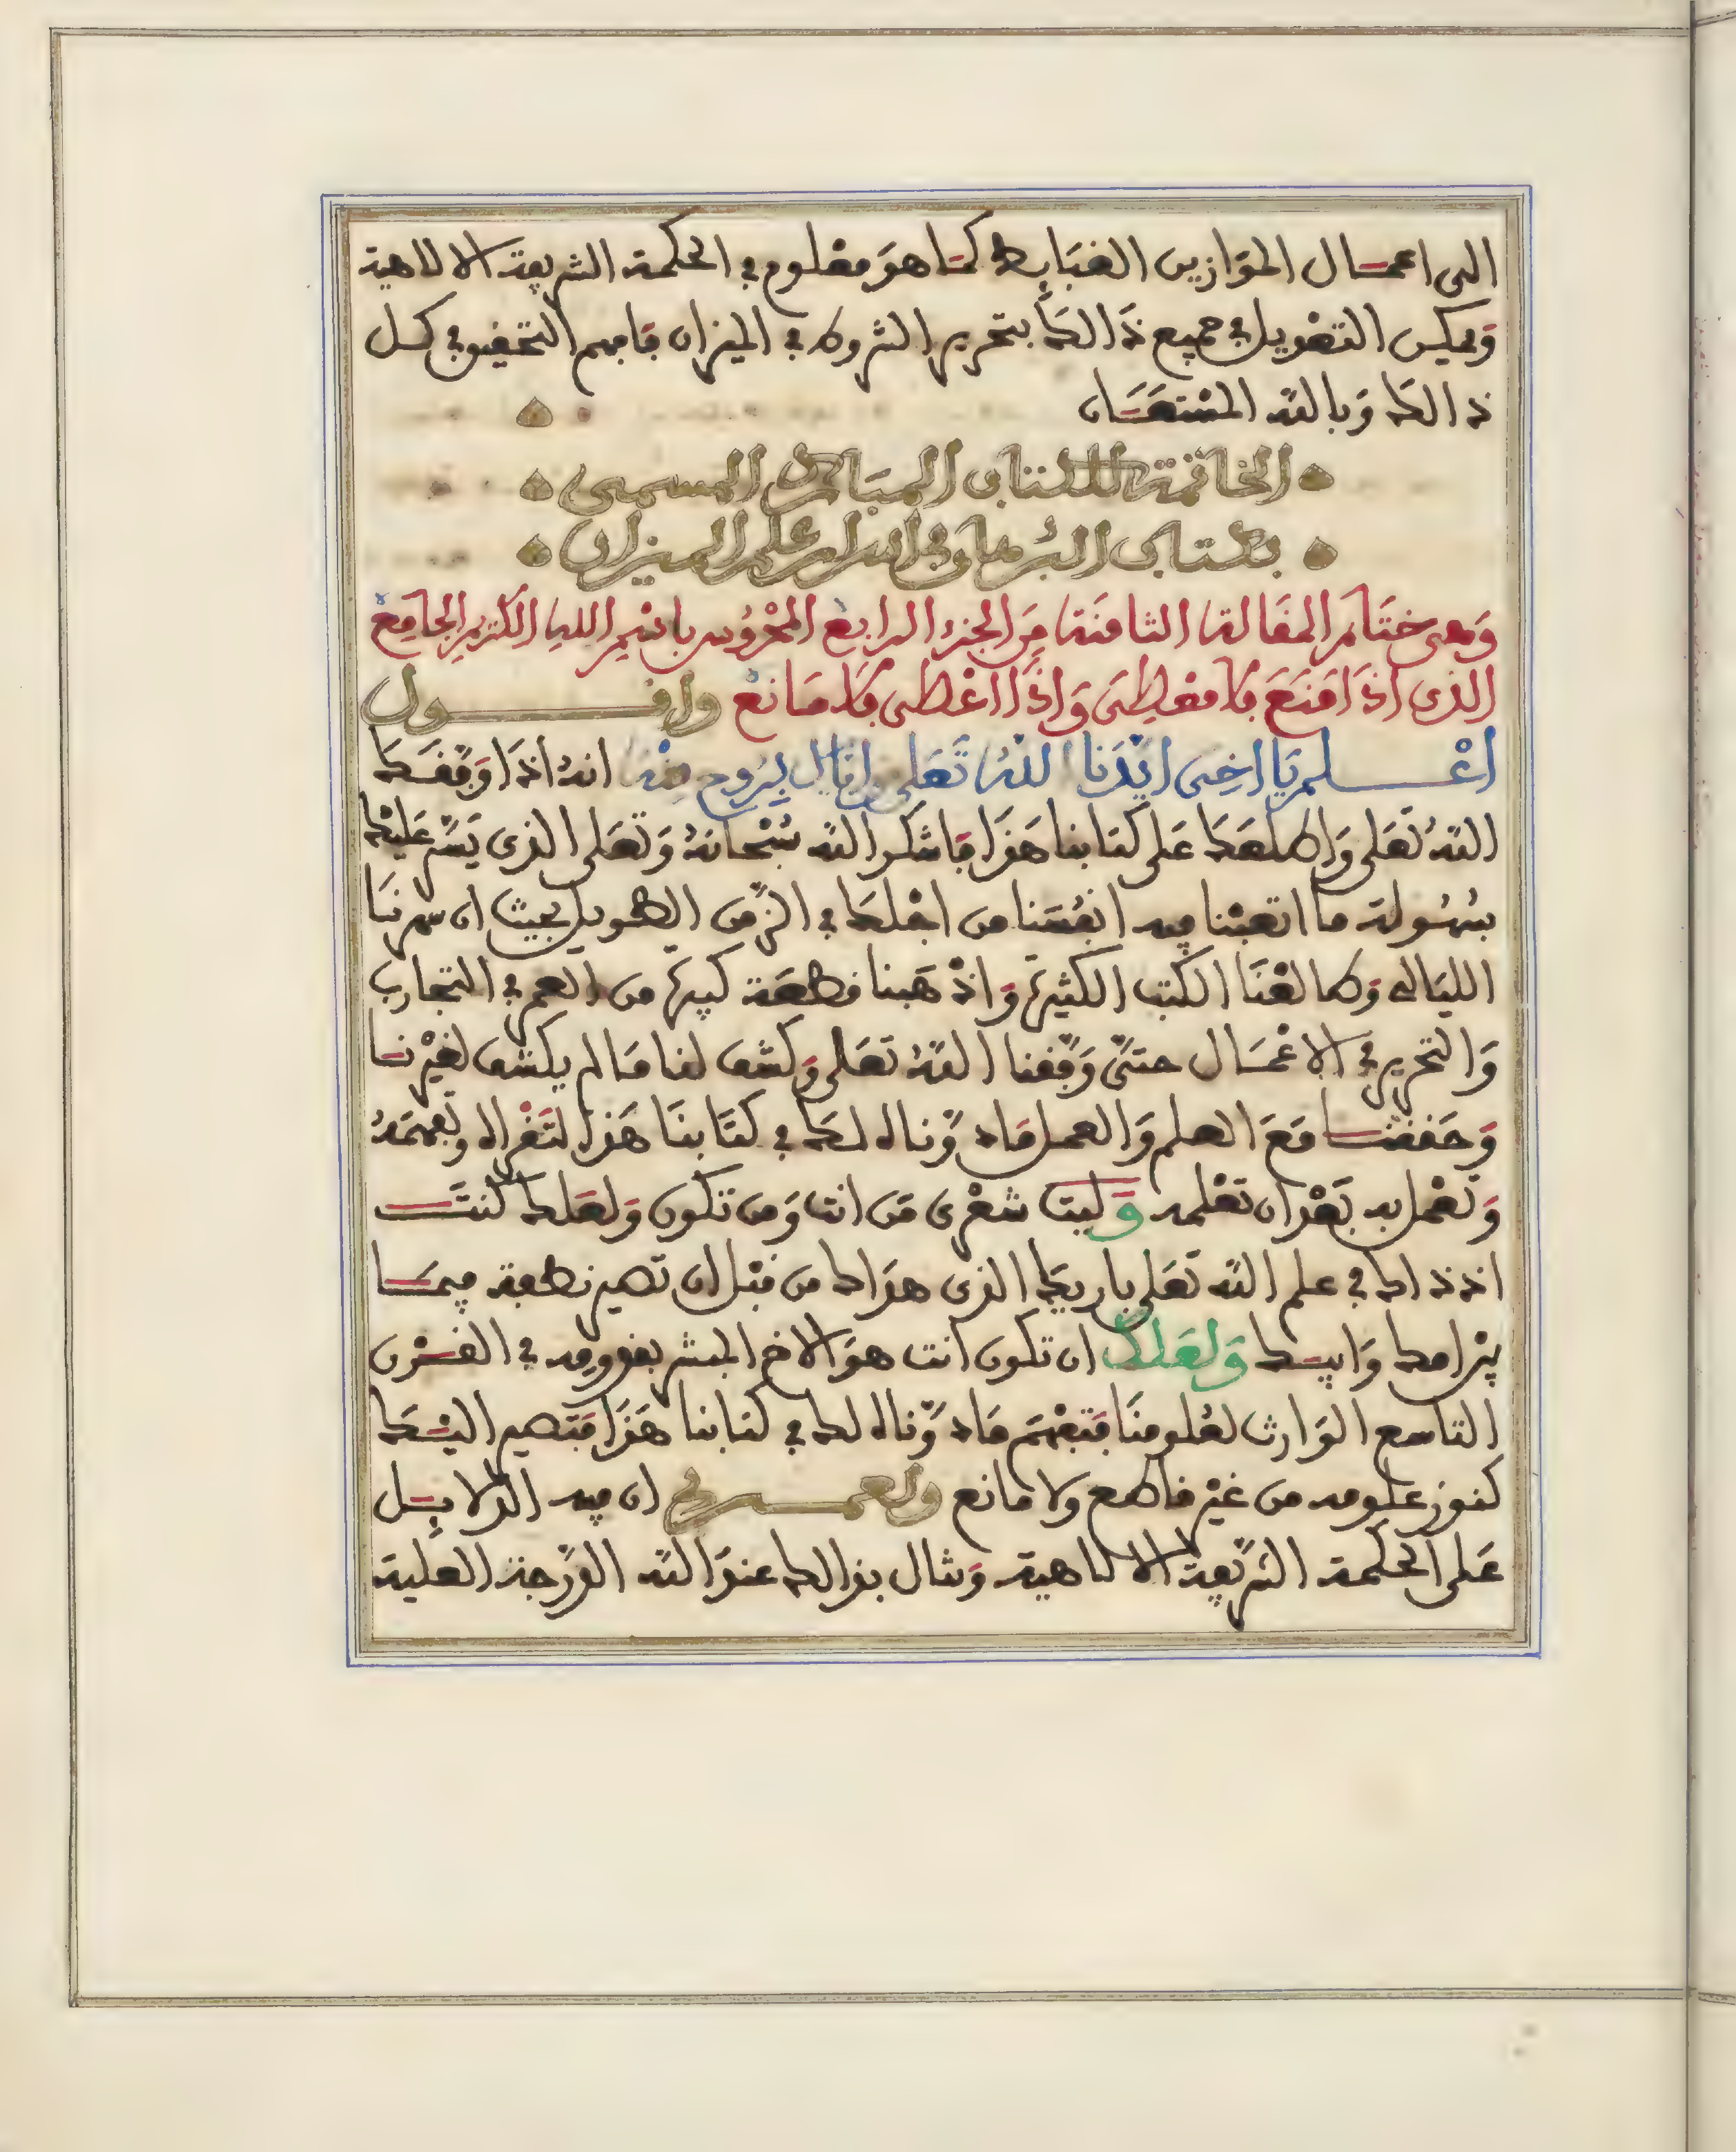 الى اعمال الموازين الضبابط كما هو معلوم في الحكمة الشريعة الالاهية
ويكن التعويل في جميع ذالك بتحرير الشروط في الميزان فافهم التحقيق في كل
ذالك وبالله المستعان
الخاتمة للكتاب المبارك المسمى
بكتاب البرهان في اسرار علم الميزان
وهي ختام المقالة الثامنة من الجزء الرابع المحروس باسم الله الكريم الجامع
الذي اذا منع فلا معطي واذا اعطى فلا مانع واقول
اعلم يا اخي ايدنا الله تعلى واياك بروح منه انه اذا وفقك
الله تعلى واطلعك على كتابنا هذا فاشكر الله سبحانه وتعلى الذي يسر عليك
بسهولة ما اتعبنا فيه انفسنا من اجلك في الزمن الطويل بحيث ان سهرنا
الليالي وطالعنا الكتب الكثيرة واذهبنا قطعة كبيرة من العمر في التجارب
والتحرير في الاعمال حتى وفقنا الله تعلى وكشف لنا ما لم يكشف لغيرنا
وحققنا مع العلم والعمل ما دوناه لك في كتابنا هذا لتقراه وتفهمه
وتعمل به بعد ان تعلمه وليت شعري من انت ومن تكون ولعلك كنت
اذ ذاك في علم الله تعلى باريك الذي هداك من قبل ان تصير نطفة فيما
بين امك وابيك ولعلك ان تكون انت هو الاخ المبشر بقدومه في القرن
التاسع الوارث لعلومنا فتفهم ما دوناه لك في كتابنا هذا فتصير اليك
كنوز علومه من غير قاطع ولا مانع ولعمري ان فيه الدلايل
على الحكمة الشريفة الالاهية وتنال بذالك عند الله الدرجة العلية